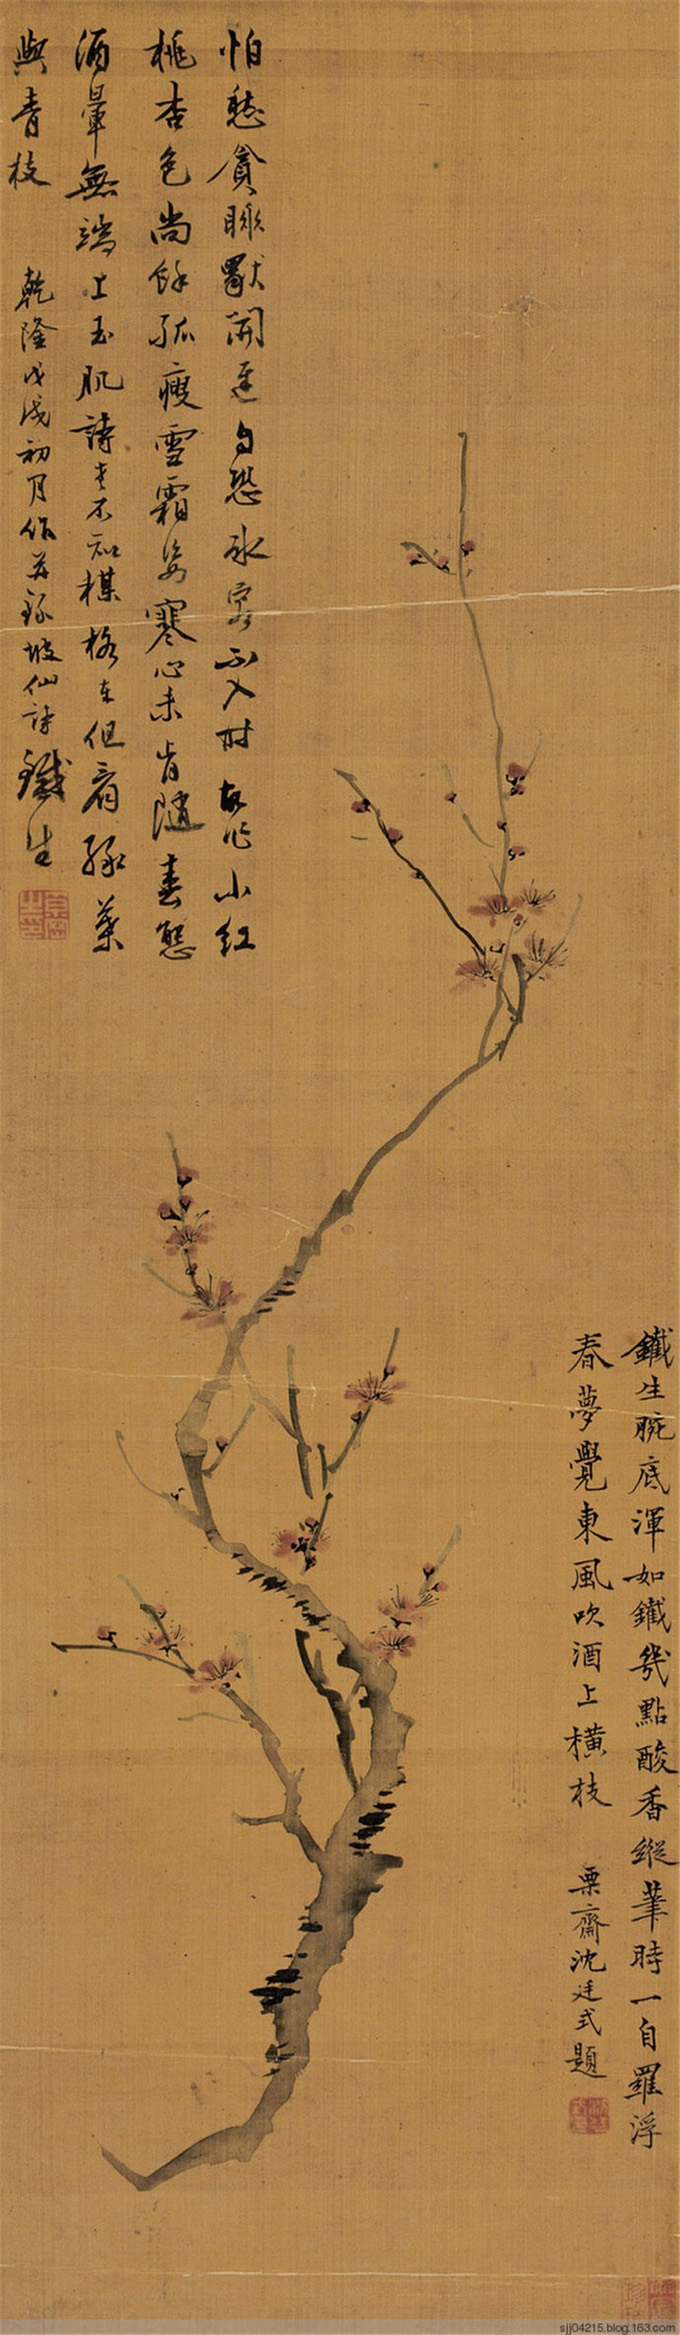 怕愁貪睡獨開遲自恐冰容不入時故作小紅
桃杏色尚餘孤瘦雪霜姿寒心未肯隨春態
酒暈無端上玉肌詩老不知楳格在但看綠葉
與青枝 乾隆戊戌初月作并錄坡仙詩 鐵生
鐵生腕底渾如鐵幾點酸香縱筆時一自羅浮
春夢覺東風吹酒上橫枝 栗齋沈廷式題
sjj04215.blog.163.com